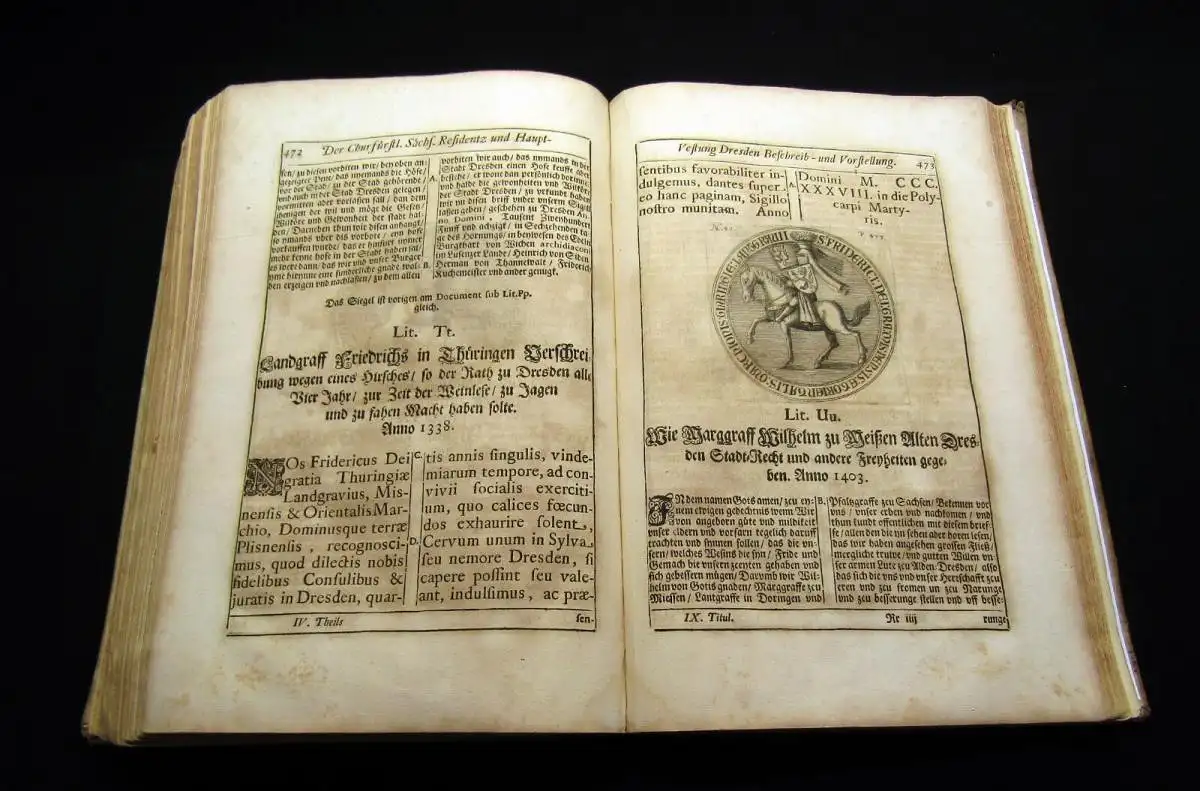 472
Der Churfürstl. Sächs. Residentz und Haupt-
sen/ zu diesen vorbiten wir/ den oben an-
gezeigter Pene/ das nyemands die Höfe/
vor der Stad/ zu der Stad gehörende/
und auch in der Stad Dresden gelegen/
vormitten aber vorlassen sall/ dan dem
jhenigen der wil und mögt die Gesetz/
Willöre und Gewonheit der stadt hal-
ten/ Daruber
so nymands uber dis vorbote/ eyn hofe
vorkauffen wurde/ das er hinfurt nymer
mehr keyne hofe in der Stadt haben sal/
es were dann/ das wir und unser Burger
yme hirynne eine sunderliche gnade wol-
den erzeigen vnd nachlassen/ zu dem allen
A.
B.
vorbiten wir auch/ das nymands in der
Stadt Dresden einen Hofe keuffe aber
besitze/ er wone dan persönlich dorinne/
und halde die gewonheiten und Willöre
der Stadt Dresden/ zu urkunde haben
wir an disen briff under unserm Sigill
lassen geben/ geschehen zu Dresden An-
no Domini, Tausent Zweyhundert
Funff und achzig/ in Sechzehenden ta-
ge des Hornungs/ in beywesen des Edeln
Burghart von Wichen archidiacon
im Lusenzer Lande/ Heinrich von
Herman von Thannewalt/ Friderich
Kuchemeister und ander genugk.
Das Siegel ist vorigen am Document sub Lit. Pp.
gleich.
Lit. Tt.
Landgraff Friedrichs in Thüringen Verschrei-
bung wegen eines Hirsches/ so der Rath zu Dresden alle
Vier Jahr/ zur Zeit der Weinlese/ zu Jagen
und zu fahen Macht haben solte.
Anno 1338.
NOs Fridericus Dei
gratia Thuringiæ
Landgravius, Mis-
nensis & Orientalis Mar-
chio, Dominusque terræ
Plisnensis, recognosci-
mus, quod dilectis nobis
fidelibus Consulibus &
juratis in Dresden, quar-
C.
D.
tis annis singulis, vinde-
miarum tempore, ad con-
vivii socialis exerciti-
um, quo calices fœcun-
dos exhaurire solent,
Cervum unum in Sylva
seu nemore Dresden, si
capere possint seu vale-
ant, indulsimus, ac præ-
IV. Theils
sen-
Vestung Dresden Beschreib- und Vorstellung.
473
sentibus favorabiliter in-
dulgemus, dantes super
eo hanc paginam, Sigillo
nostro munitam. Anno
A.
Domini M. CCC.
XXXVIII. in die Poly-
carpi Marty-
ris.
P. 473
Lit. Uu.
Wie Marggraff Wilhelm zu Meißen Alten Dres-
den Stadt-Recht und andere Freyheiten gege-
ben. Anno 1403.
IN dem namen Gots amen/ zcu en-
nem ewigen gedechtnis wenn Wir
von angeborn güte und mildikeit
vnser eldern und vorfarn tegelich daruff
trachten und synnen sollen/ das die vn-
sern/ welches Wesins die syn/ Fride und
Gemach bie vnsern zcenten gehaben und
sich gebessern mügen/ Darumb wir Wil-
helm von Gotis gnaden/ Marggraffe zcu
Miessen/ Lantgraffe in Doringen und
B.
Pfaltzgraffe zcu Sachsen/ Bekennen vor
vns/ vnser erben und nachkomen/ und
thun kundt offentlichen mit diesem brief-
fe/ allen den die yn sehen aber horen lesen/
das wir haben angesehen grossen Fließ/
mergliche truwe/ und gutten Willen vn-
ser armen Lute zcu Alden Dresden/ also
das sich die vns vnd vnser Herrschafft zcu
eren und zcu fromen un zcu Narunge
und zcu besserunge stellen und uff besse-
IX. Titul.
Rr iiij
runge